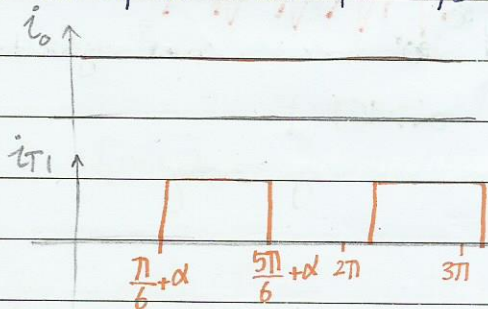 i₀
i_T1
π/6 + α 5π/6 + α 2π 3π